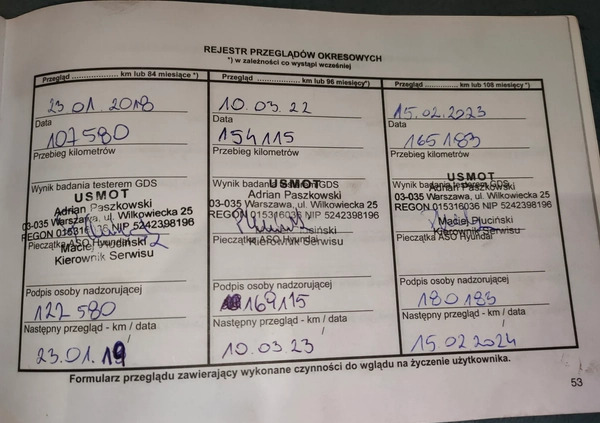 REJESTR PRZEGLĄDÓW OKRESOWYCH
*) w zależności co wystąpi wcześniej
Przegląd .................. km lub 84 miesiące *)
23 01 2018
Data
107580
Przebieg kilometrów
Wynik badania testerem GDS
USMOT
Adrian Paszkowski
03-035 Warszawa, ul. Wilkowiecka 25
REGON 015316036 NIP 5242398196
Pieczątka ASO Hyundai
Maciej
Kierownik Serwisu
Podpis osoby nadzorującej
122 580
Następny przegląd - km / data
23.01.19
Przegląd .................. km lub 96 miesięcy*)
10.03.22
Data
154115
Przebieg kilometrów
Wynik badania testerem GDS
USMOT
Adrian Paszkowski
03-035 Warszawa, ul. Wilkowiecka 25
REGON 015316036 NIP 5242398196
Pieczątka ASO Hyundai
Kierownik Serwisu
Podpis osoby nadzorującej
169115
Następny przegląd - km / data
10.03.23
Przegląd .................. km lub 108 miesięcy*)
15.02.2023
Data
165183
Przebieg kilometrów
Wynik badania testerem GDS
USMOT
Adrian Paszkowski
03-035 Warszawa, ul. Wilkowiecka 25
REGON 015316036 NIP 5242398196
Maciej Pluciński
Pieczątka ASO Hyundai
Kierownik Serwisu
Podpis osoby nadzorującej
180 183
Następny przegląd - km / data
15.02.2024
Formularz przeglądu zawierający wykonane czynności do wglądu na życzenie użytkownika.
53